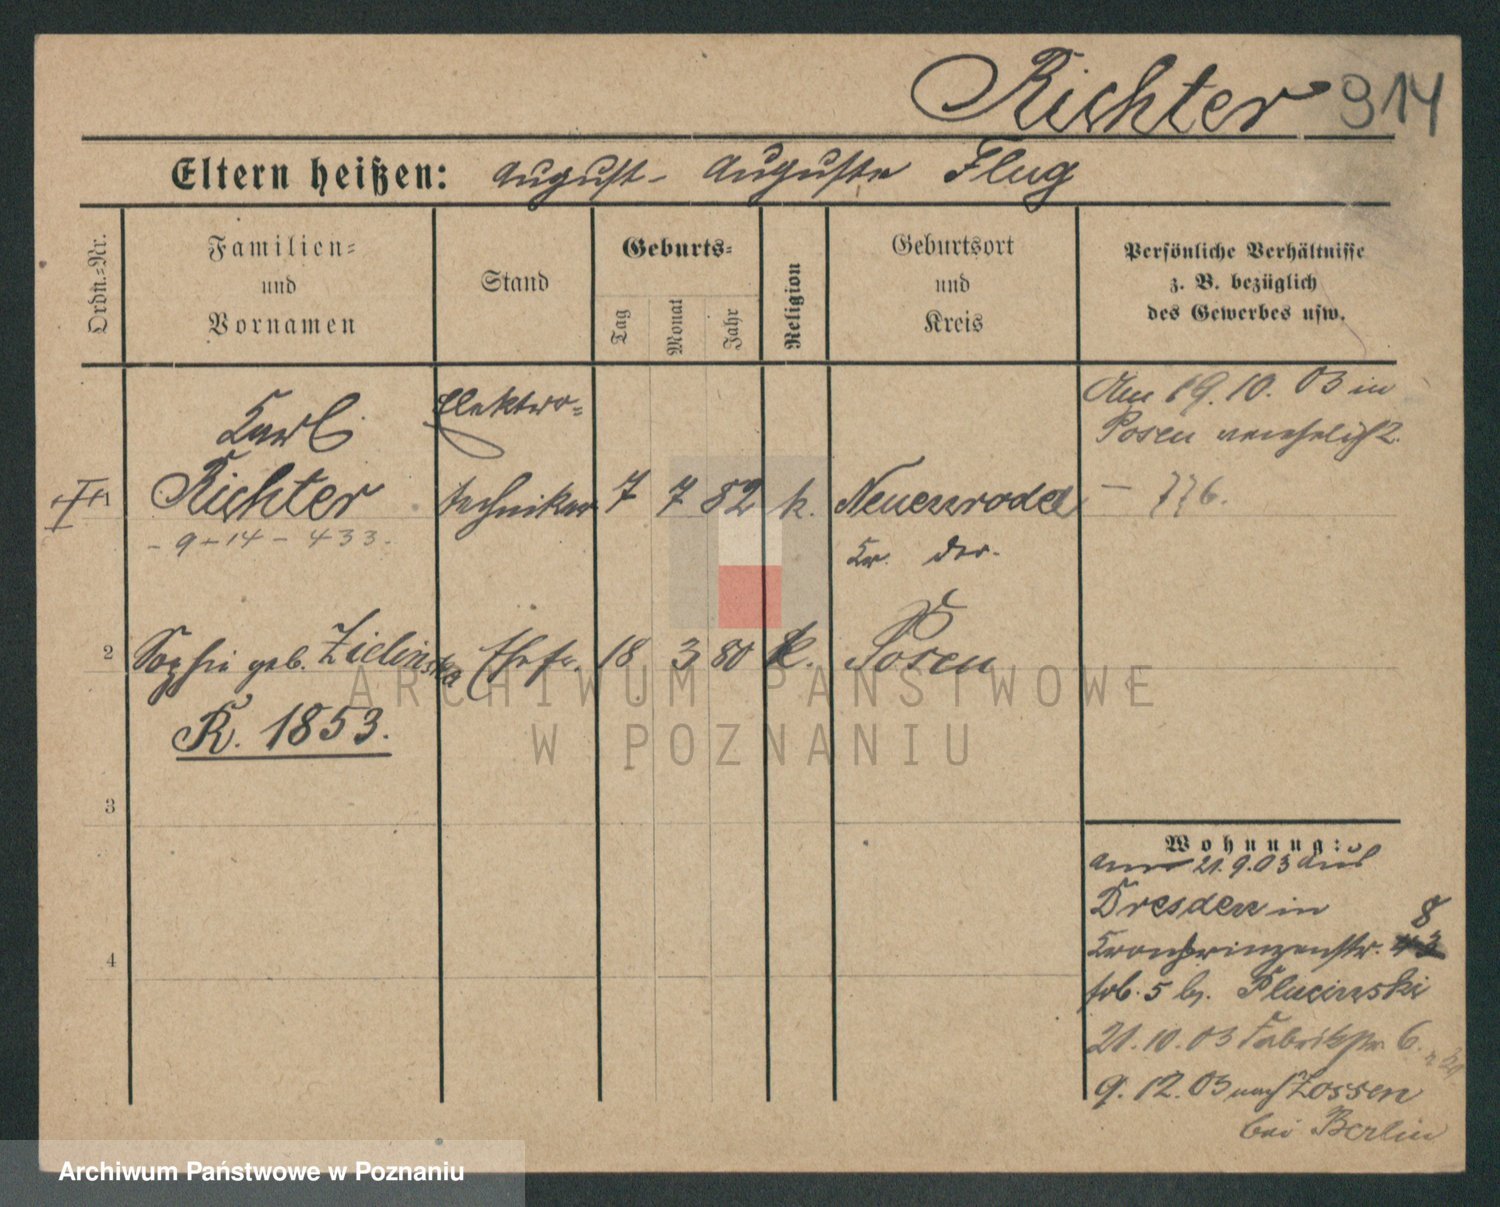 Richter 914
Eltern heißen: August - Auguste Flug
Ordn.=Nr.
Familien=
und
Vornamen
Stand
Geburts=
Tag
Monat
Jahr
Religion
Geburtsort
und
Kreis
Persönliche Verhältnisse
z. B. bezüglich
des Gewerbes usw.
Karl
Richter
- 9 - 14 - 433.
Elektro=
techniker
7 7 82 k.
Neuenrode
Kr.
Am 19. 10. 03 in
Posen verehelicht.
- 776.
2 Sophie geb. Zielinska Ehefr. 18 3 80 k. Posen
K. 1853.
3
4
Wohnung:
am 21.9.03 aus
Dresden in
Kronprinzenstr. 8
b. Plucinski
21.10.03 Fabrikstr. 6.
9.12.03 nach Zossen
bei Berlin
ARCHIWUM PAŃSTWOWE
W POZNANIU
Archiwum Państwowe w Poznaniu